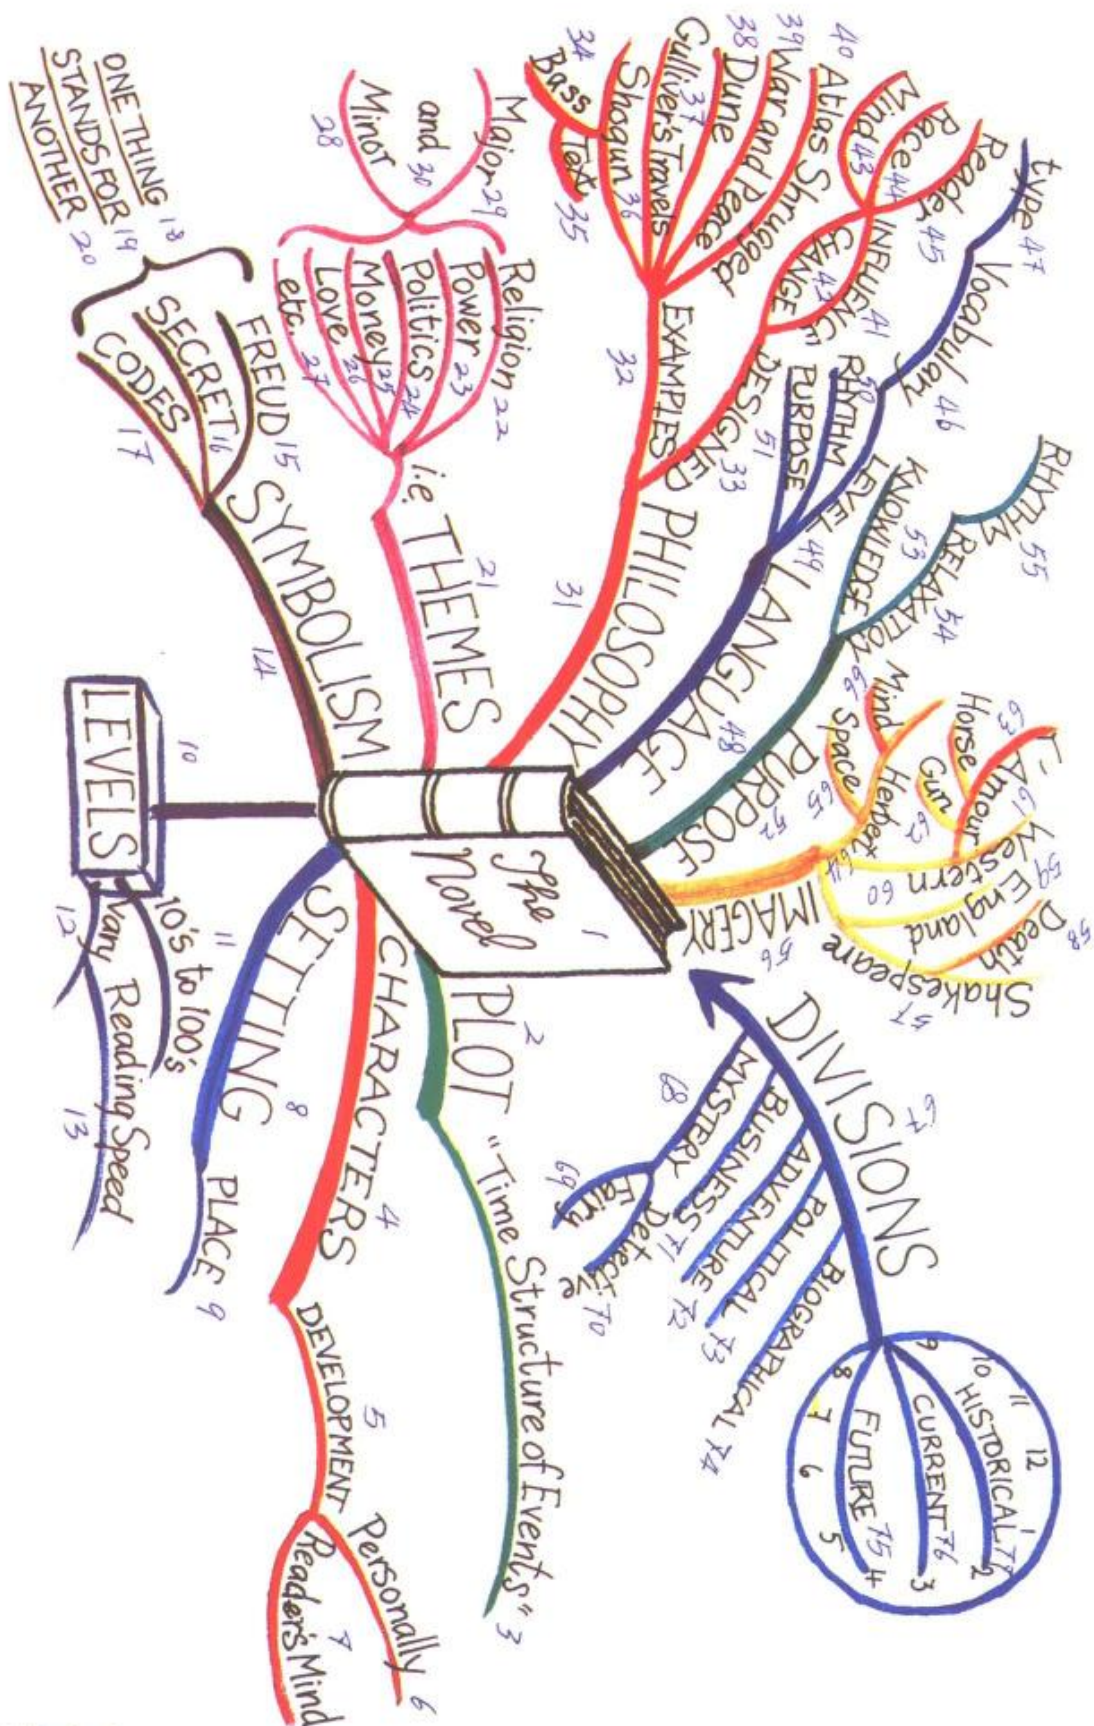 The
Novel 1
PLOT 2
"Time Structure of Events" 3
CHARACTERS 4
DEVELOPMENT 5
Personally 6
Reader's Mind 7
SETTING 8
PLACE 9
LEVELS 10
10's to 100's 11
Vary 12
Reading Speed 13
SYMBOLISM 14
FREUD 15
SECRET 16
CODES 17
ONE THING 18
STANDS FOR 19
ANOTHER 20
THEMES 21
i.e.
Religion 22
Power 23
Politics 24
Money 25
Love 26
etc. 27
Minor 28
Major 29
and 30
PHILOSOPHY 31
EXAMPLES 32
DESIGNED 33
Bass 34
Text 35
Shogun 36
Gulliver's Travels 37
Dune 38
War and Peace 39
Atlas Shrugged 40
INFLUENCE 41
CHANGE 42
Mind 43
Race 44
Reader 45
Vocabulary 46
type 47
LANGUAGE 48
LEVEL 49
RHYTHM 50
PURPOSE 51
PURPOSE 52
KNOWLEDGE 53
RELAXATION 54
RHYTHM 55
IMAGERY 56
Shakespeare 57
Death 58
England 59
Western 60
L'Amour 61
Gun 62
Horse 63
Herbert 64
Space 65
Mind 66
DIVISIONS 67
MYSTERY 68
Fairy 69
Detective 70
BUSINESS 71
ADVENTURE 72
POLITICAL 73
BIOGRAPHICAL 74
FUTURE 75
CURRENT 76
HISTORICAL 77
12
1
2
3
4
5
6
7
8
9
10
11